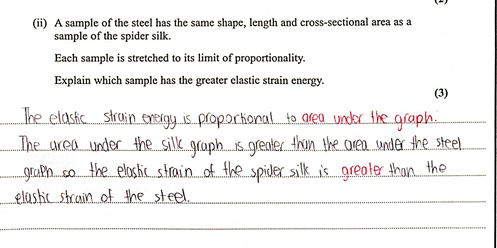 (2)
(ii) A sample of the steel has the same shape, length and cross-sectional area as a
sample of the spider silk.
Each sample is stretched to its limit of proportionality.
Explain which sample has the greater elastic strain energy.
(3)
The elastic strain energy is proportional to area under the graph.
The area under the silk graph is greater than the area under the steel
graph so the elastic strain of the spider silk is greater than the
elastic strain of the steel.